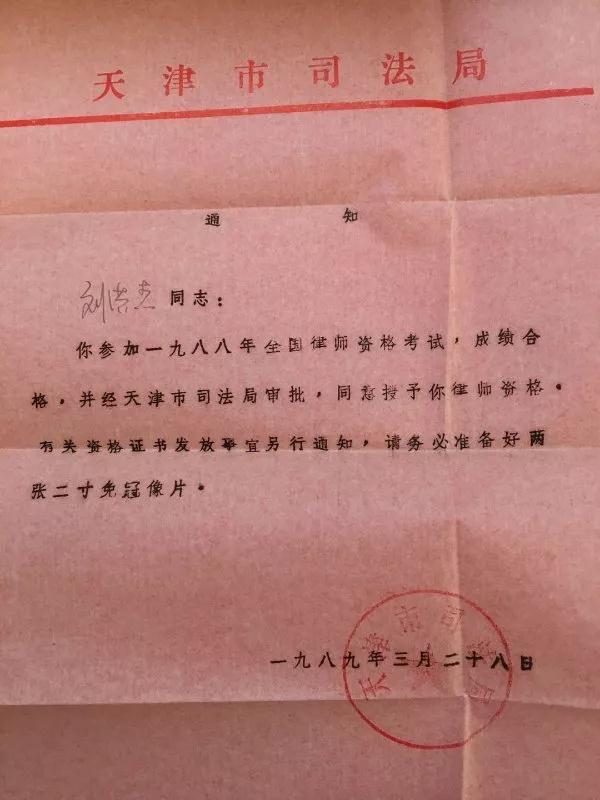 天津市司法局
通 知
刘洪杰 同志：
你参加一九八八年全国律师资格考试，成绩合
格，并经天津市司法局审批，同意授予你律师资格。
有关资格证书发放事宜另行通知，请务必准备好两
张二寸免冠像片。
天津市司法局
一九八九年三月二十八日